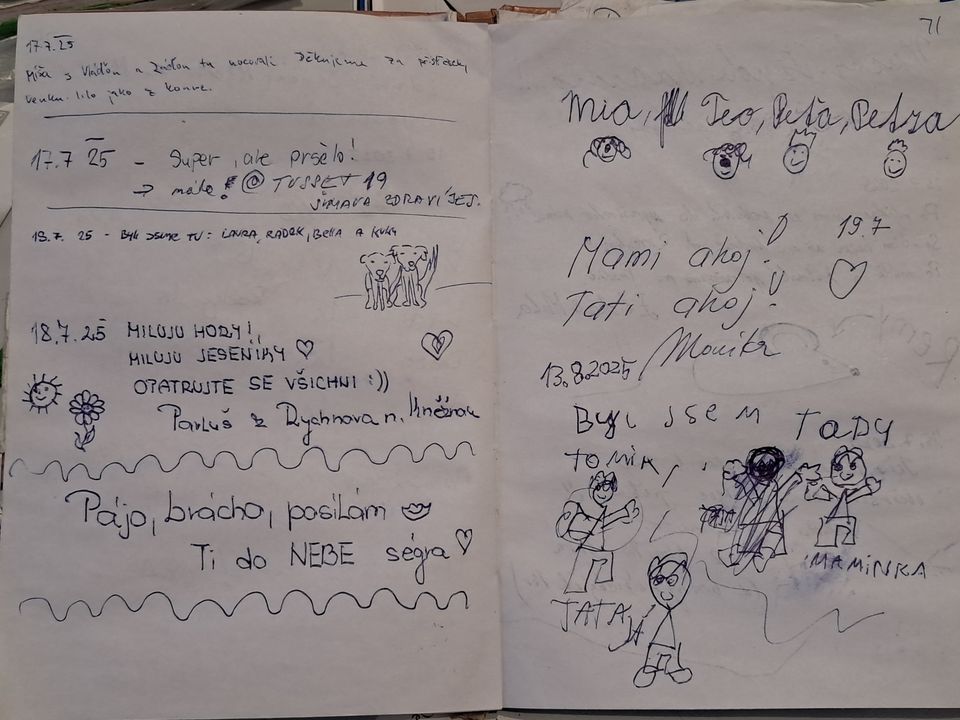 17.7.25
Míša s Vláďou a Zdíďou tu nocovali. Děkujeme za přístřešky
venku lilo jako z konve.
17.7 25 - Super, ale pršelo!
→ @ TUSSET 19
ŠUMAVA ZDRAVÍ JES.
19.7. 25 - BYLI JSME TU: LAURA, RADEK, BELLA A KUKY
18.7.25 MILUJU HORY!
MILUJU JESENÍKY ♡
OPATRUJTE SE VŠICHNI :))
Pavluš z Rychnova n. Kněžnou
Pájo, brácho, posílám
Ti do NEBE ségra ♡
71
Mia, Teo, Peťa, Petra
Mami ahoj! 19.7
Tati ahoj!
Monika
13.8.2025
Byl jsem TADY
TOMÍK,
TÁTA
MAMINKA
TATA JÁ